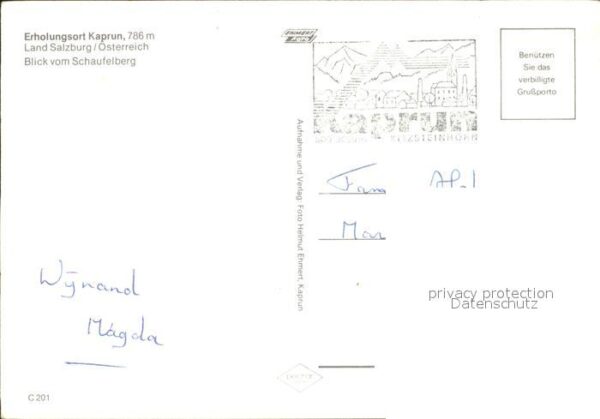 Erholungsort Kaprun, 786 m
Land Salzburg/Österreich
Blick vom Schaufelberg
Benützen
Sie das
verbilligte
Grußporto
kaprun
KITZSTEINHORN
Aufnahme und Verlag: Foto Helmut Ehmert, Kaprun
Fam
Mar
Wÿnand
Mágda
privacy protection
Datenschutz
C 201